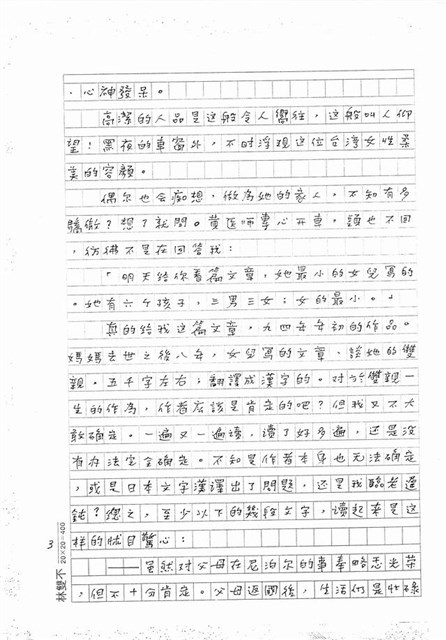 心神發呆。
高潔的人品是這般令人嚮往，這般叫人仰
望！黑夜的車窗外，不時浮現這位台灣女性柔
美的容顏。
偶尔也会痴想，做為她的家人，不知有多
驕傲？想了就問。黃医師專心开車，頭也不回
，彷彿不是在回答我：
「明天給你看篇文章，她最小的女兒寫的
。她有六个孩子，三男三女；女的最小。」
真的給我這篇文章，九四年年初的作品。
媽媽去世之後八年，女兒寫的文章，談她的雙
親。五千字左右；翻譯成漢字的。对於雙親一
生的作為，作者应該是肯定的吧？但我又不大
敢確定。一遍又一遍讀，讀了好多遍，还是沒
有办法完全確定。不知是作者本身也无法確定
，或是日本文字漢譯出了問題，还是我臨老遲
鈍？總之，至少以下的幾段文字，讀起來是这
樣的怵目驚心：
——虽然对父母在尼泊尔的事奉略感光榮
，但不十分肯定。父母返國後，生活仍是忙碌
3
林雙不 20×20=400